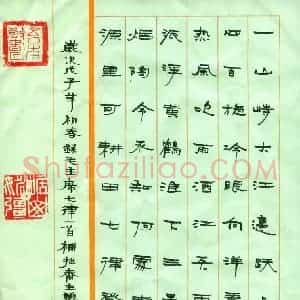 一山峙大江邊跃
四百旋冷眼向洋
热風吹雨洒江天
派浮黄鶴浪下三
烟陶令不知何處
源里可耕田七律登
歲次戊子年初春錄毛主席七律一首補拙齋主
Shufaziliao.com